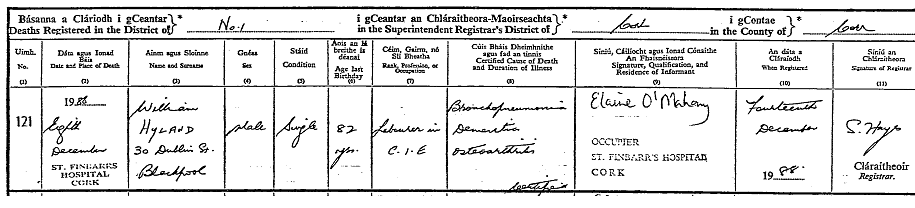 Básanna a Cláríodh i gCeantar }* i gCeantar an Chláraitheora-Maoirseachta }* i gContae }
Deaths Registered in the District of No. 1 in the Superintendent Registrar's District of Cork in the County of Cork
Uimh. No. (1)
Dáta agus Ionad Báis Date and Place of Death (2)
Ainm agus Sloinne Name and Surname (3)
Gnéas Sex (4)
Stáid Condition (5)
Aois an lá breithe is déanaí Age last Birthday (6)
Céim, Gairm, nó Slí Bheatha Rank, Profession, or Occupation (7)
Cúis Bháis Dheimhnithe agus fad an tinnis Certified Cause of Death and Duration of Illness (8)
Síniú, Cáilíocht agus Ionad Cónaithe An Fhaisnéiseora Signature, Qualification, and Residence of Informant (9)
An dáta a Cláraíodh When Registered (10)
Síniú an Chláraitheora Signature of Registrar (11)
121
1988
Eighth
December
ST. FINBARRS
HOSPITAL
CORK
William
HYLAND
30 Dublin St.
Blackpool
Male
Single
82
yrs.
Labourer in
C.I.E
Bronchopneumonia
Dementia
Osteoarthritis
Certified
Elaine O'Mahony
OCCUPIER
ST. FINBARR'S HOSPITAL
CORK
Fourteenth
December
1988.
S. Hays
Cláraitheoir
Registrar.